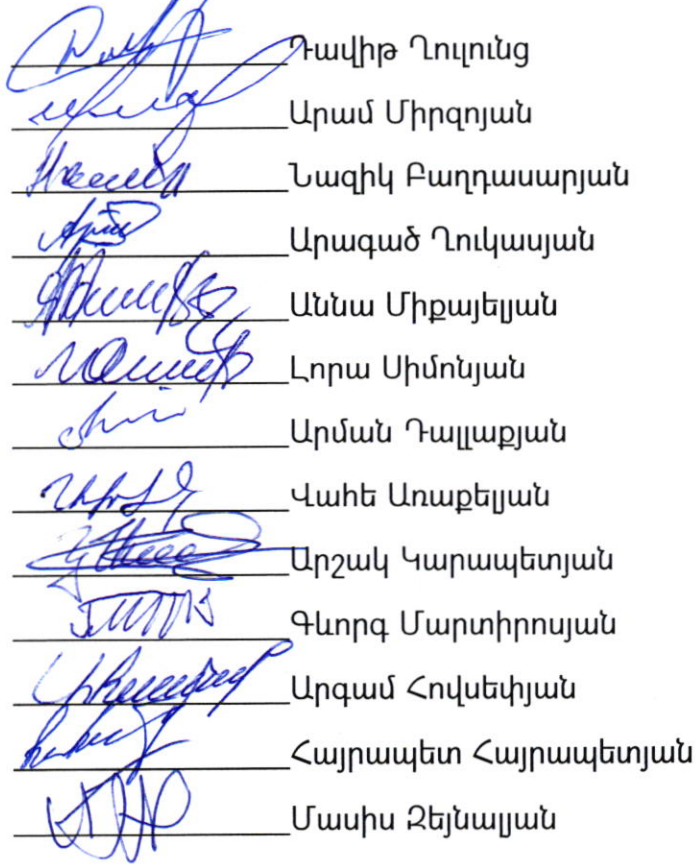 Դավիթ Ղուլունց
Արամ Միրզոյան
Նազիկ Բաղդասարյան
Արագած Ղուկասյան
Աննա Միքայելյան
Լորա Սիմոնյան
Արման Դալլաքյան
Վահե Առաքելյան
Արշակ Կարապետյան
Գևորգ Մարտիրոսյան
Արգամ Հովսեփյան
Հայրապետ Հայրապետյան
Մասիս Զեյնալյան